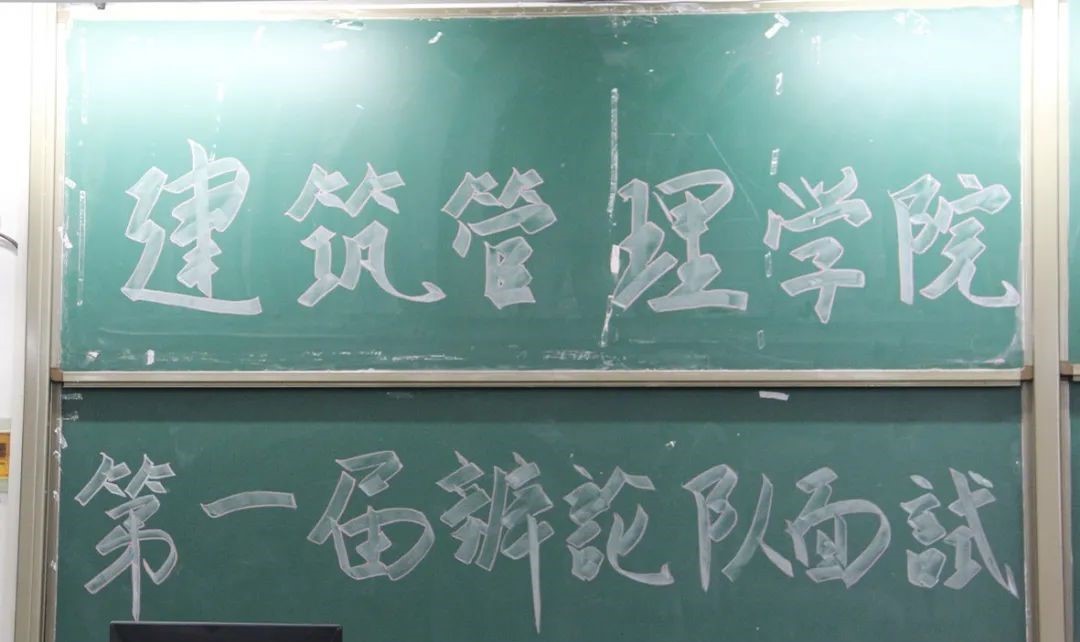 建筑管理学院
第一届辩论队面試